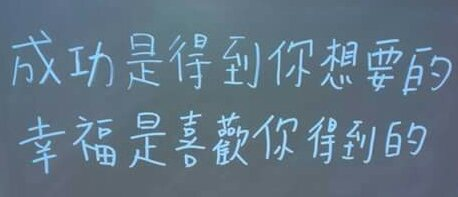 成功是得到你想要的
幸福是喜歡你得到的